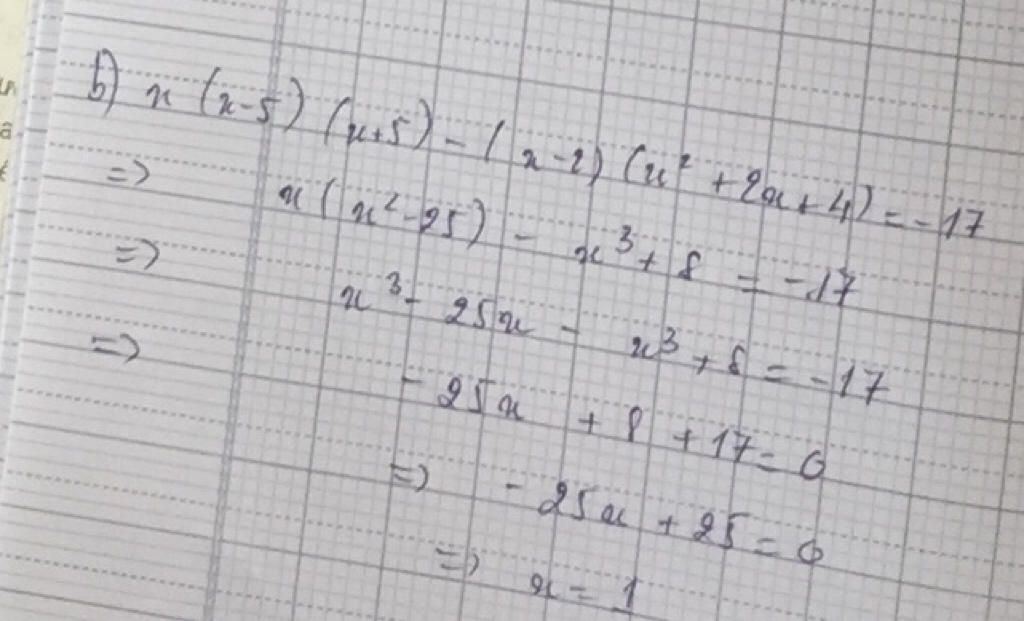 b) x (x-5) (x+5) - (x-2) (x² + 2x + 4) = -17
=> x (x² - 25) - x³ + 8 = -17
=> x³ - 25x - x³ + 8 = -17
=> - 25x + 8 + 17 = 0
=> - 25x + 25 = 0
=> x = 1